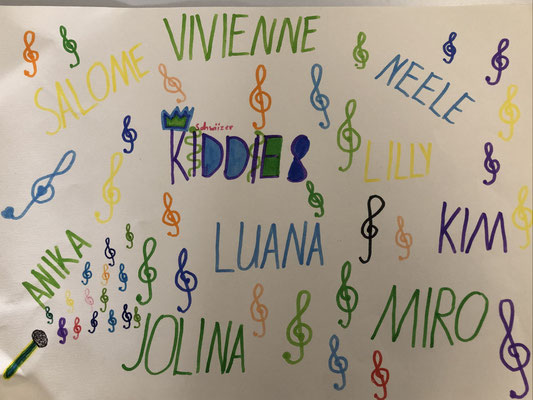 VIVIENNE
SALOME
NEELE
KIDDIES
LILLY
LUANA
KIM
ANIKA
JOLINA
MIRO